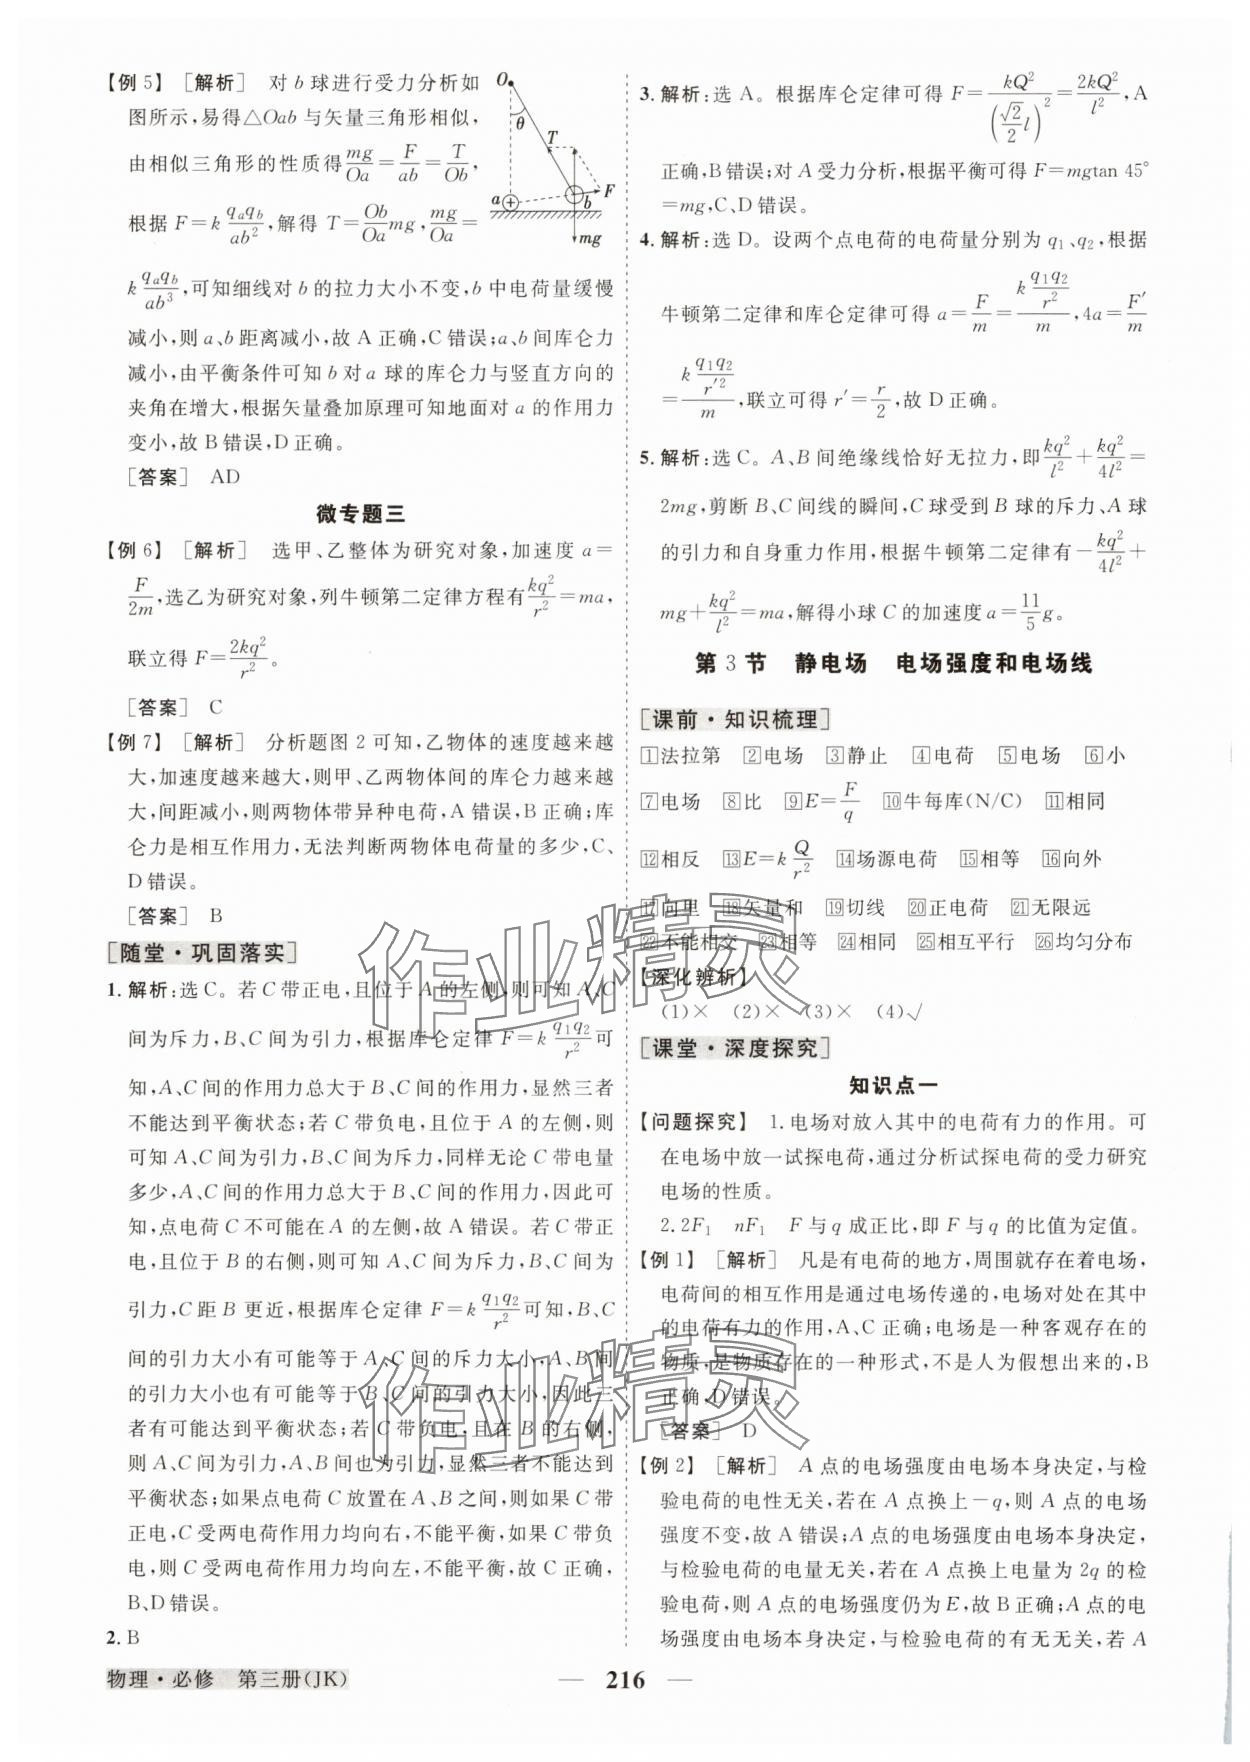 【例 5】 [解析] 对 b 球进行受力分析如
图所示,易得△Oab 与矢量三角形相似,
由相似三角形的性质得 mg/Oa = F/ab = T/Ob,
根据 F=k q_a q_b/ab²,解得 T= Ob/Oa mg, mg/Oa =
k q_a q_b/ab³,可知细线对 b 的拉力大小不变,b 中电荷量缓慢
减小,则 a、b 距离减小,故 A 正确,C 错误;a、b 间库仑力
减小,由平衡条件可知 b 对 a 球的库仑力与竖直方向的
夹角在增大,根据矢量叠加原理可知地面对 a 的作用力
变小,故 B 错误,D 正确。
[答案] AD
O
θ
T
a
b
F
mg
微专题三
【例 6】 [解析] 选甲、乙整体为研究对象,加速度 a=
F/2m,选乙为研究对象,列牛顿第二定律方程有 kq²/r² =ma,
联立得 F= 2kq²/r²。
[答案] C
【例 7】 [解析] 分析题图 2 可知,乙物体的速度越来越
大,加速度越来越大,则甲、乙两物体间的库仑力越来越
大,间距减小,则两物体带异种电荷,A 错误,B 正确;库
仑力是相互作用力,无法判断两物体电荷量的多少,C、
D 错误。
[答案] B
[随堂·巩固落实]
1.解析:选 C。若 C 带正电,且位于 A 的左侧,则可知 A、C
间为斥力,B、C 间为引力,根据库仑定律 F=k q₁q₂/r² 可
知,A、C 间的作用力总大于 B、C 间的作用力,显然三者
不能达到平衡状态;若 C 带负电,且位于 A 的左侧,则
可知 A、C 间为引力,B、C 间为斥力,同样无论 C 带电量
多少,A、C 间的作用力总大于 B、C 间的作用力,因此可
知,点电荷 C 不可能在 A 的左侧,故 A 错误。若 C 带正
电,且位于 B 的右侧,则可知 A、C 间为斥力,B、C 间为
引力,C 距 B 更近,根据库仑定律 F=k q₁q₂/r² 可知,B、C
间的引力大小有可能等于 A、C 间的斥力大小,A、B 间
的引力大小也有可能等于 B、C 间的引力大小,因此三
者有可能达到平衡状态;若 C 带负电,且在 B 的右侧,
则 A、C 间为引力,A、B 间也为引力,显然三者不能达到
平衡状态;如果点电荷 C 放置在 A、B 之间,则如果 C 带
正电,C 受两电荷作用力均向右,不能平衡,如果 C 带负
电,则 C 受两电荷作用力均向左,不能平衡,故 C 正确,
B、D 错误。
2.B
3.解析:选 A。根据库仑定律可得 F= kQ²/(√2/2 l)² = 2kQ²/l²,A
正确,B 错误;对 A 受力分析,根据平衡可得 F=mgtan 45°
=mg,C、D 错误。
4.解析:选 D。设两个点电荷的电荷量分别为 q₁、q₂,根据
牛顿第二定律和库仑定律可得 a= F/m = (k q₁q₂/r²)/m,4a= F′/m
= (k q₁q₂/r′²)/m,联立可得 r′= r/2,故 D 正确。
5.解析:选 C。A、B 间绝缘线恰好无拉力,即 kq²/l² + kq²/4l² =
2mg,剪断 B、C 间线的瞬间,C 球受到 B 球的斥力、A 球
的引力和自身重力作用,根据牛顿第二定律有 − kq²/4l² +
mg+ kq²/l² =ma,解得小球 C 的加速度 a= 11/5 g。
第 3 节 静电场 电场强度和电场线
[课前·知识梳理]
1法拉第 2电场 3静止 4电荷 5电场 6小
7电场 8比 9E= F/q 10牛每库(N/C) 11相同
12相反 13E=k Q/r² 14场源电荷 15相等 16向外
17向里 18矢量和 19切线 20正电荷 21无限远
22不能相交 23相等 24相同 25相互平行 26均匀分布
【深化辨析】
(1)× (2)× (3)× (4)√
[课堂·深度探究]
知识点一
【问题探究】 1.电场对放入其中的电荷有力的作用。可
在电场中放一试探电荷,通过分析试探电荷的受力研究
电场的性质。
2.2F₁ nF₁ F 与 q 成正比,即 F 与 q 的比值为定值。
【例 1】 [解析] 凡是有电荷的地方,周围就存在着电场,
电荷间的相互作用是通过电场传递的,电场对处在其中
的电荷有力的作用,A、C 正确;电场是一种客观存在的
物质,是物质存在的一种形式,不是人为假想出来的,B
正确,D 错误。
[答案] D
【例 2】 [解析] A 点的电场强度由电场本身决定,与检
验电荷的电性无关,若在 A 点换上−q,则 A 点的电场
强度不变,故 A 错误;A 点的电场强度由电场本身决定,
与检验电荷的电量无关,若在 A 点换上电量为 2q 的检
验电荷,则 A 点的电场强度仍为 E,故 B 正确;A 点的电
场强度由电场本身决定,与检验电荷的有无无关,若 A
作业精灵
作业精灵
物理·必修 第三册(JK)
— 216 —